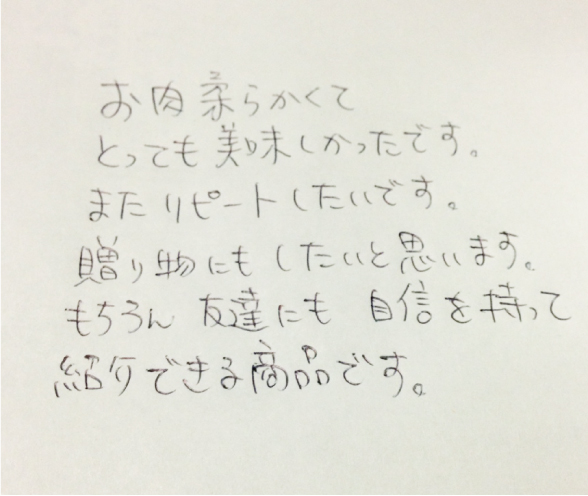 お肉柔らかくて
とっても美味しかったです。
またリピートしたいです。
贈り物にもしたいと思います。
もちろん 友達にも 自信を持って
紹介できる商品です。